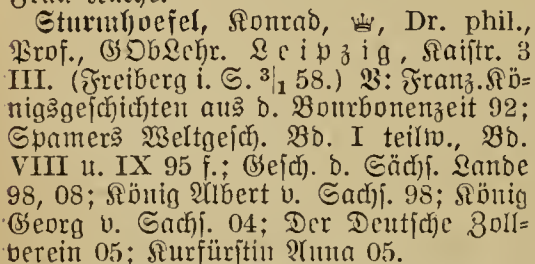 Sturmhoefel, Konrad, ♕, Dr. phil.,
Prof., GObLehr. Leipzig, Kaistr. 3
III. (Freiberg i. S. 3/1 58.) V: Franz. Kö-
nigsgeschichten aus d. Bourbonenzeit 92;
Spamers Weltgesch. Bd. I teilw., Bd.
VIII u. IX 95 f.; Gesch. d. Sächs. Lande
98, 08; König Albert v. Sachs. 98; König
Georg v. Sachs. 04; Der Deutsche Zoll-
verein 05; Kurfürstin Anna 05.